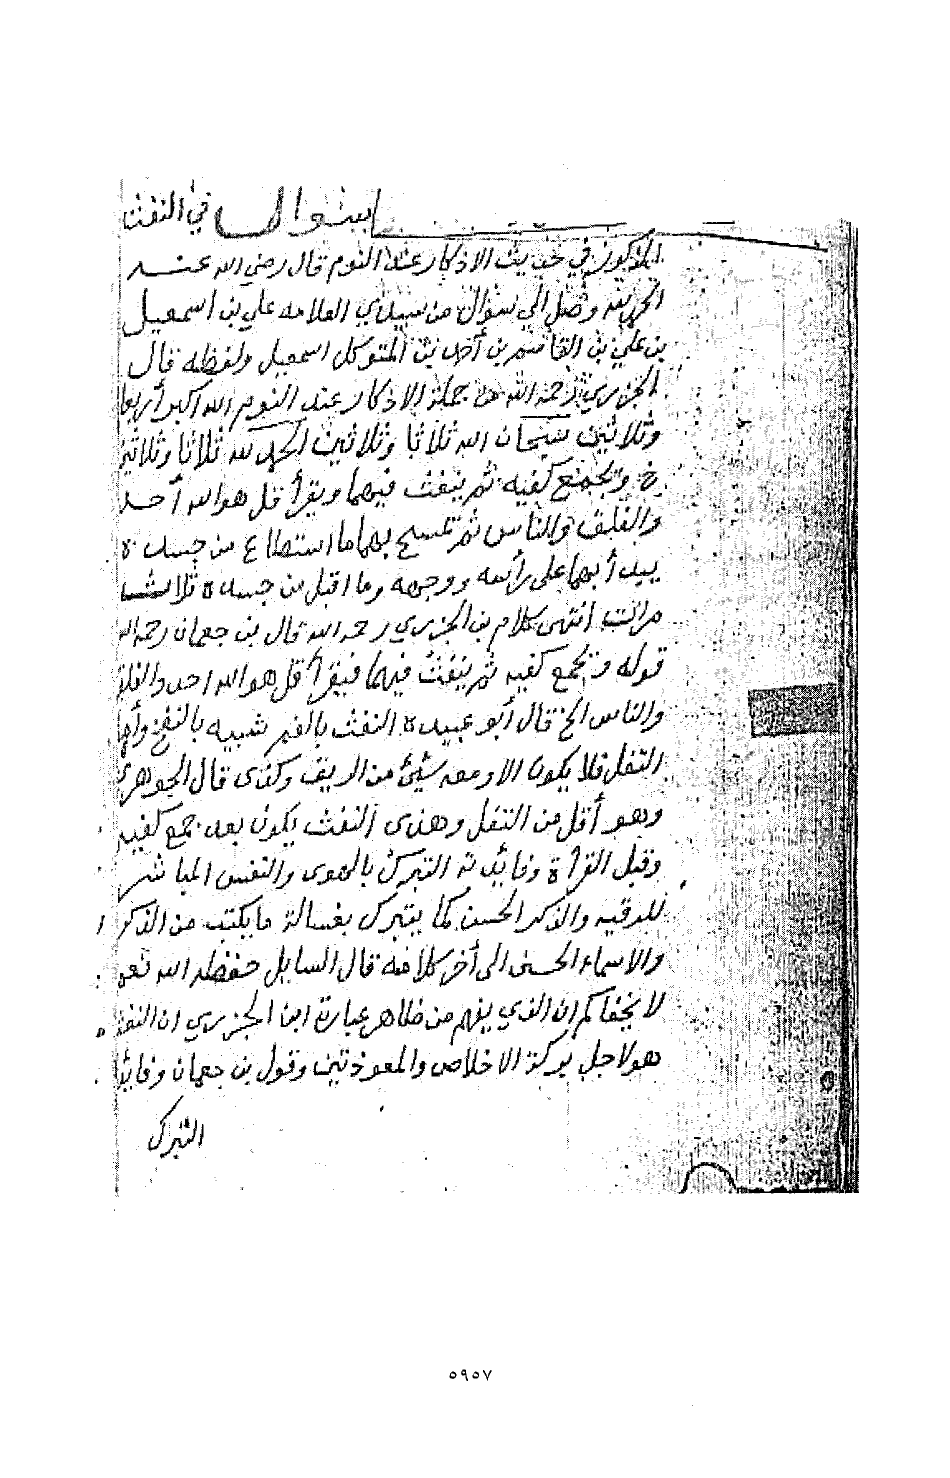 سؤال في النفث
المذكور في حديث الاذكار عند النوم قال رضي الله عنه
الحمد لله وصل الي سؤال من سيدي العلامه علي بن اسمعيل
بن علي بن القاسم بن أحمد بن المتوكل اسمعيل ولفظه قال
الجزري رحمه الله من جملة الاذكار عند النوم الله اكبر أربعا
وثلاثين سبحان الله ثلاثا وثلاثين الحمد لله ثلاثا وثلاثين
خ ويجمع كفيه ثم ينفث فيهما ويقرأ قل هو الله أحد
والفلق والناس ثم يمسح بهما ما استطاع من جسده
يبدأ بهما على رأسه ووجهه وما اقبل من جسده ثلاث
مرات انتهى كلام بن الجزري رحمه الله قال بن جعمان رحمه الله
قوله ويجمع كفيه ثم ينفث فيهما فيقرأ قل هو الله احد والفلق
والناس الخ قال أبو عبيدة النفث بالفم شبيه بالنفخ وأما
التفل فلا يكون الا ومعه شيئ من الريق وكذى قال الجوهري
وهو أقل من التفل وهذى النفث يكون بعد جمع كفيه
وقبل القرأة وفائدته التبرك بالهوى والنفس المباشر
للرقيه والذكر الحسن كما يتبرك بغسالة ما يكتب من الذكر
والاسماء الحسنى الى أخر كلامه قال السايل حفظه الله تعو
لا يخفاكم ان الذي يفهم من ظاهر عبارة ابن الجزري ان النفث
هو لاجل بركة الاخلاص والمعوذتين وقول بن جعمان وفائدته
التبرك
٥٩٥٧